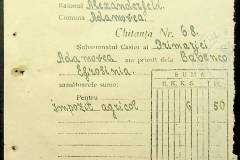 Raionul Alexanderfeld.
Comuna Adamovca
Chitanța Nr. 68.
Subsemnatul Casier al Primăriei
Adamovca am primit dela Babenco
Efrosinia
următoarele sume:
SUMA
R.K.K.S. R.M.
Pentru
impozit agricol 6 50